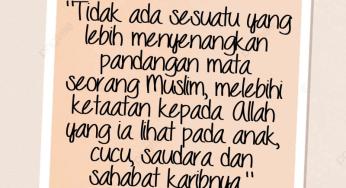 "Tidak ada sesuatu yang
lebih menyenangkan
pandangan mata
seorang Muslim, melebihi
ketaatan kepada Allah
yang ia lihat pada anak,
cucu, saudara dan
sahabat karibnya."